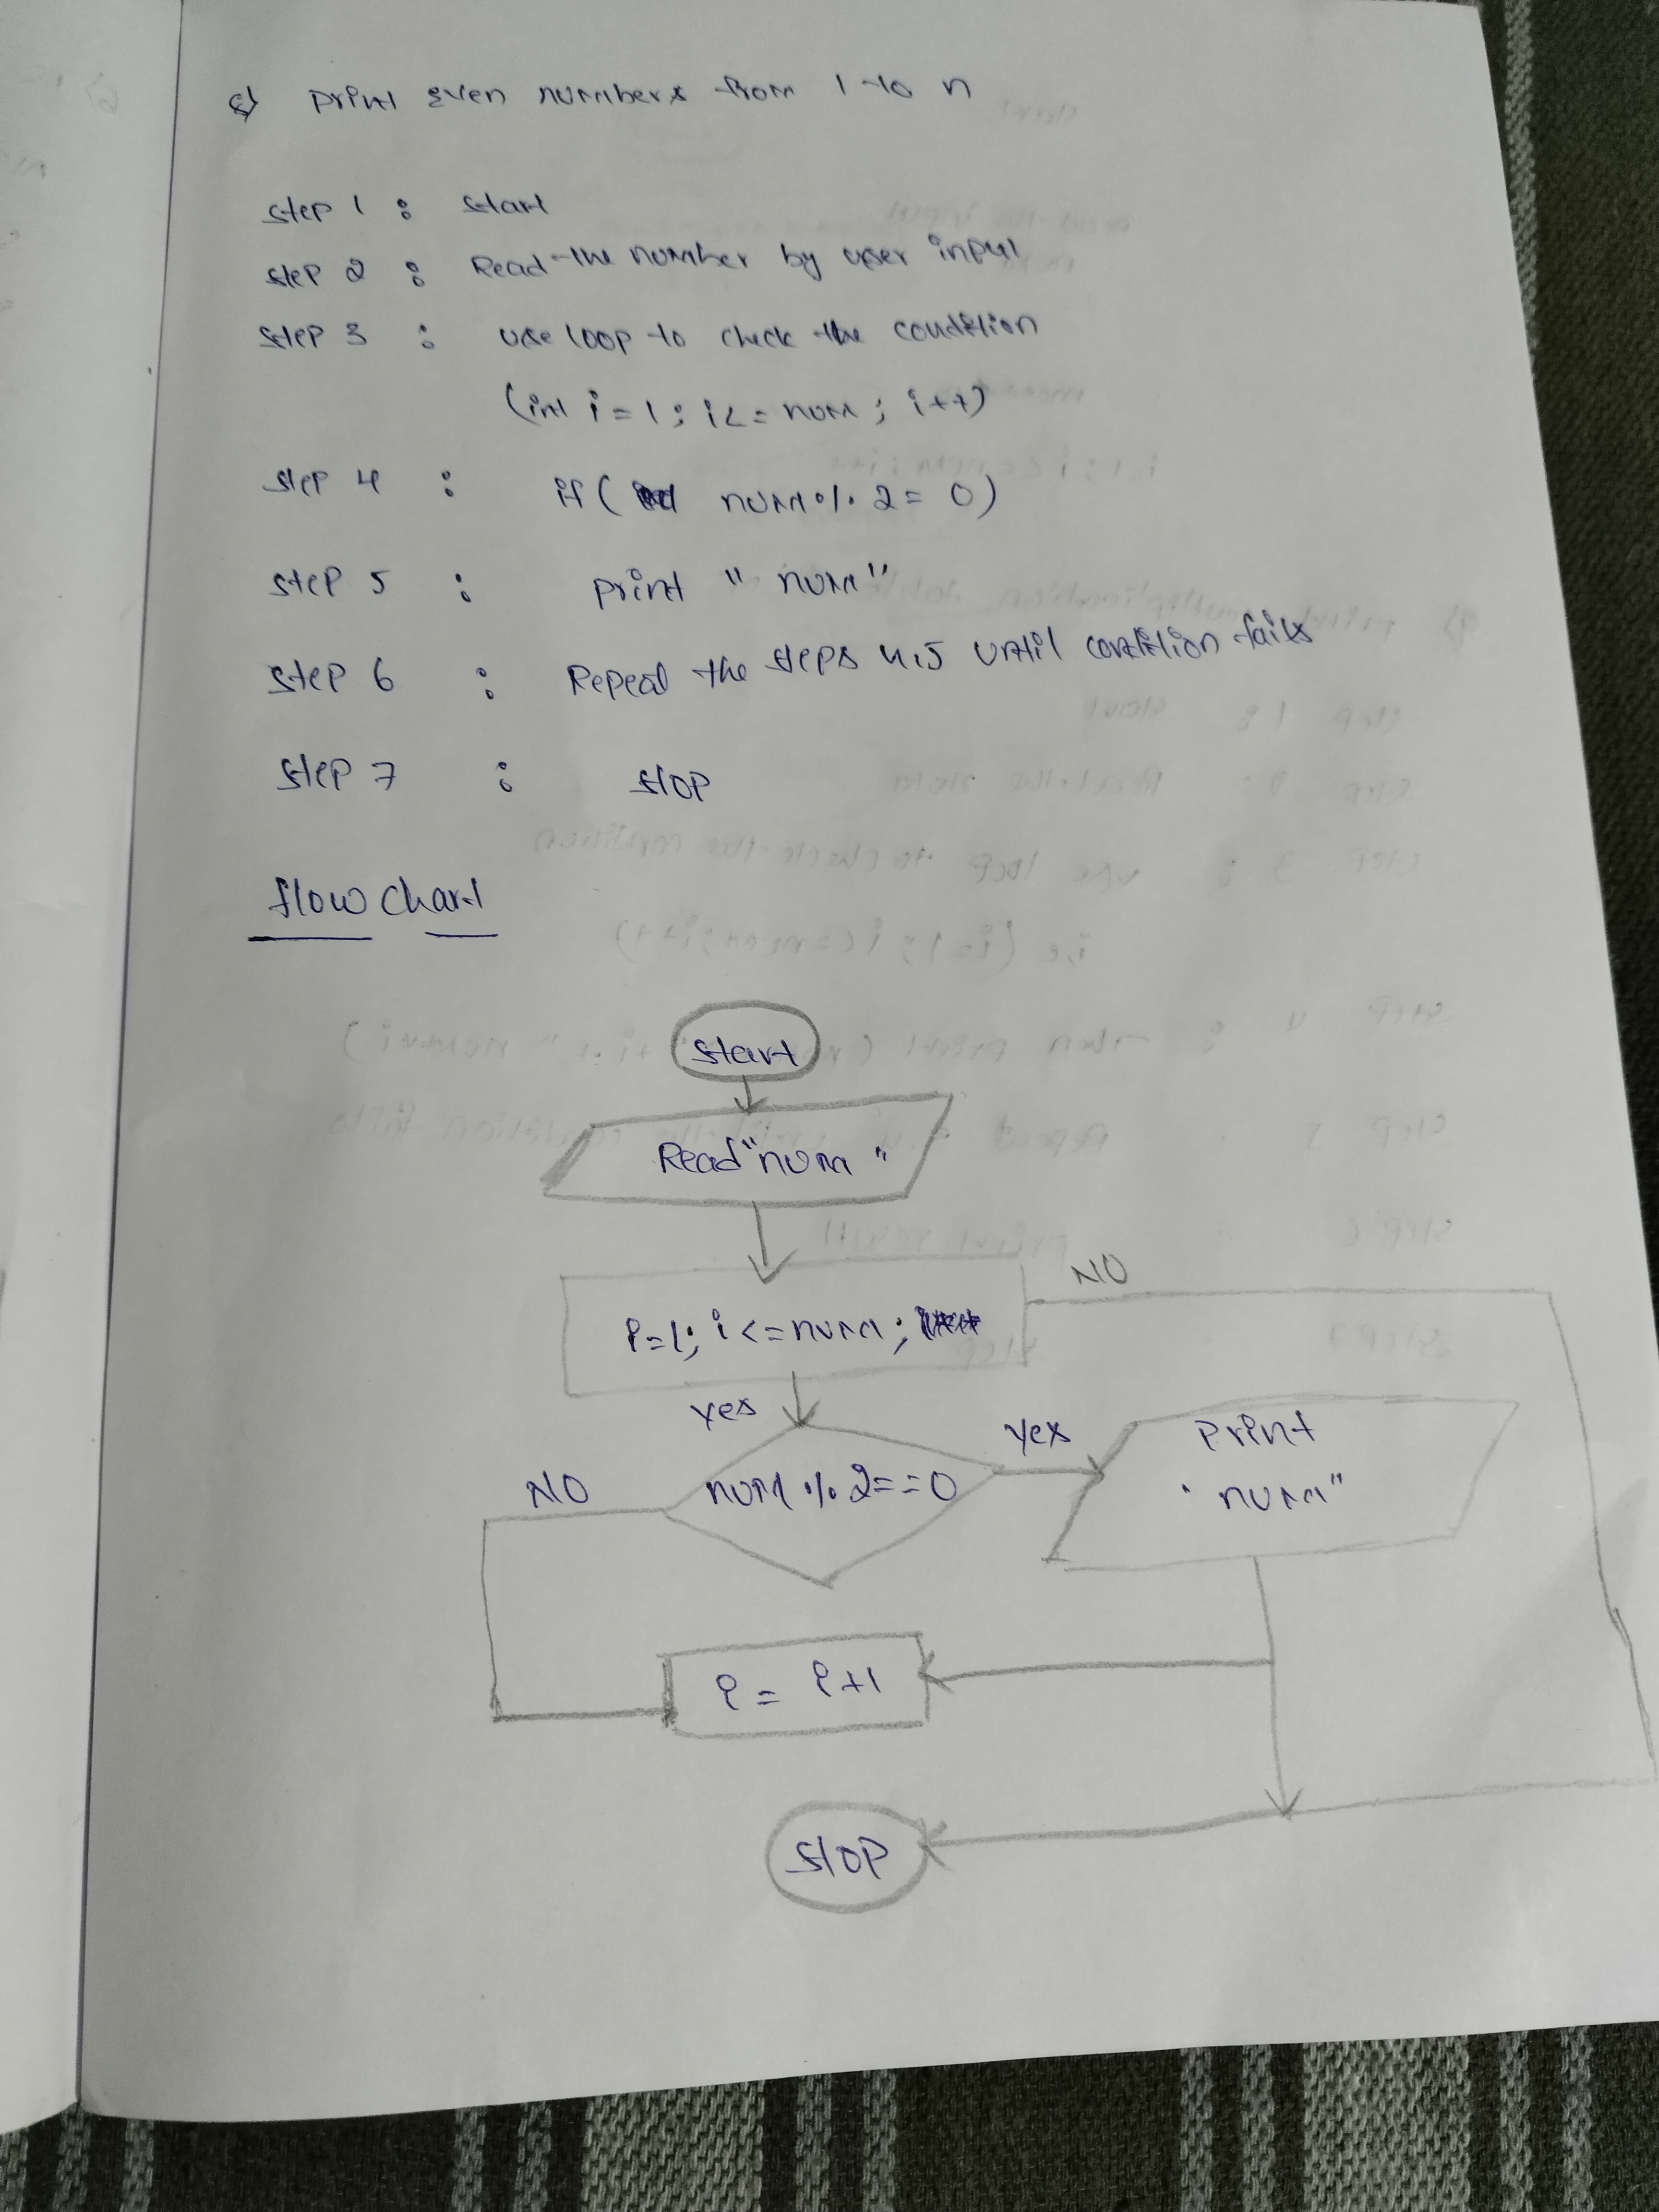 8) print even numbers from 1 to n
step 1 : start
step 2 : Read the number by user input
step 3 : use loop to check the condition
(int i = 1 ; i <= num ; i++)
step 4 : if ( num % 2 = 0)
step 5 : print " num"
step 6 : Repeat the steps 4,5 until condition fails
step 7 : stop
flow chart
start
Read "num "
NO
i=1; i <= num ;
yes
yes
print
NO
num % 2==0
" num"
i = i+1
stop